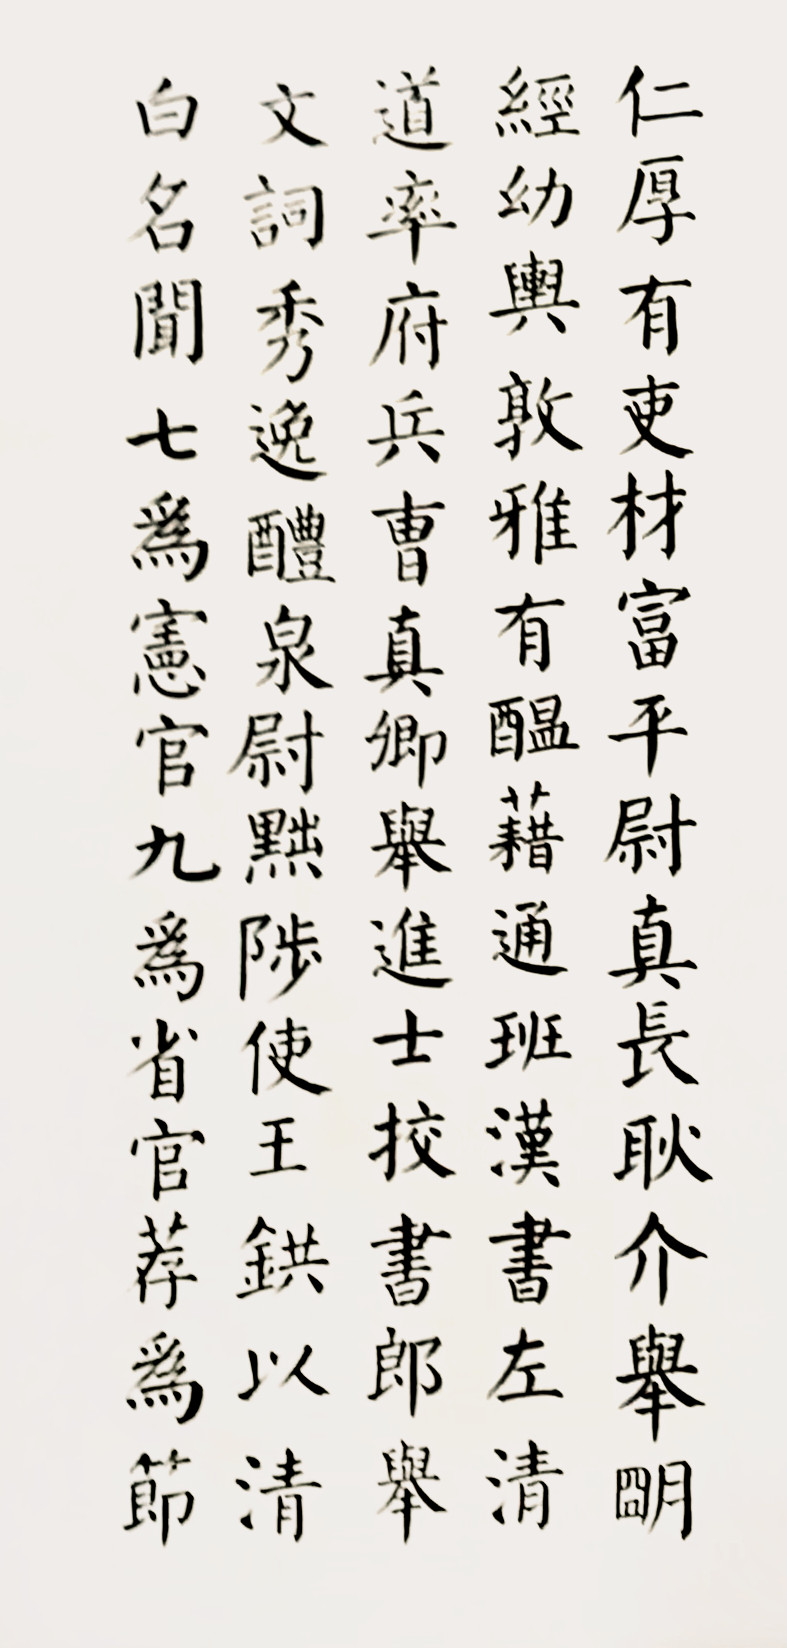 仁厚有吏材富平尉真長耿介舉明
經幼輿敦雅有醞藉通班漢書左清
道率府兵曹真卿舉進士挍書郎舉
文詞秀逸醴泉尉黜陟使王鉷以清
白名聞七爲憲官九爲省官荐爲節